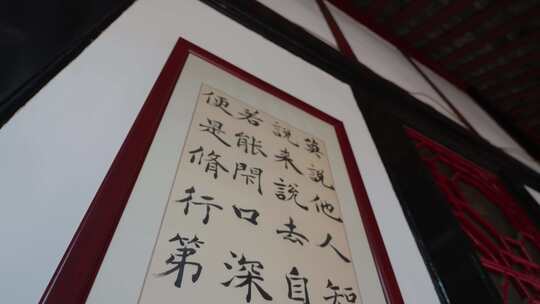 莫說他人
說來說去自
若能閉口深
便是脩行第